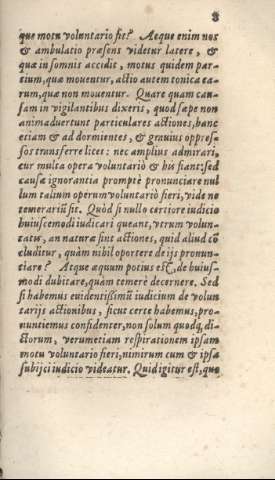 8
que motu voluntario fit? Aeque enim nos
& ambulatio præsens videtur latere, &
quæ in somnis accidit, motus quidem par-
tium, quæ mouentur, actio autem tonica ea-
rum, quæ non mouentur. Quare quam cau-
sam in vigilantibus dixeris, quod sæpe non
animaduertunt particulares actiones, hanc
etiam & ad dormientes, & grauius oppres-
sos transferre licet: nec amplius admirari,
cur multa opera voluntariò & his fiant: sed
causæ ignorantia promptè pronunciare nul
lum talium operum voluntariò fieri, vide ne
temerariū sit. Quòd si nullo certiore iudicio
huiuscemodi iudicari queant, vtrum volun-
tatis, an naturæ sint actiones, quid aliud cō
cluditur, quàm nihil oportere de ijs pronun-
tiare? Atque æquum potius est, de huius-
modi dubitare, quàm temere decernere. Sed
si habemus euidentissimū iudicium de volun
tarijs actionibus, sicut certe habemus, pro-
nuntiemus confidenter, non solum quodq́; di-
ctorum, verumetiam respirationem ipsam
motu voluntario fieri, nimirum cum & ipsa
subijci iudicio videatur. Quid igitur est, quo